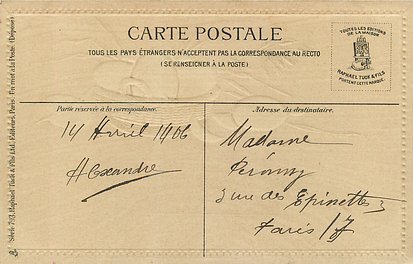 CARTE POSTALE
TOUS LES PAYS ÉTRANGERS N'ACCEPTENT PAS LA CORRESPONDANCE AU RECTO
(SE RENSEIGNER À LA POSTE)
TOUTES LES ÉDITIONS
DE LA MAISON
RAPHAEL TUCK & FILS
PORTENT CETTE MARQUE.
Partie réservée à la correspondance.
Adresse du destinataire.
14 Avril 1906
Alexandre
Madame
3 rue des Epinettes
Paris 17
Série 763. Raphael Tuck & Fils Ltd. Editeurs, Paris.